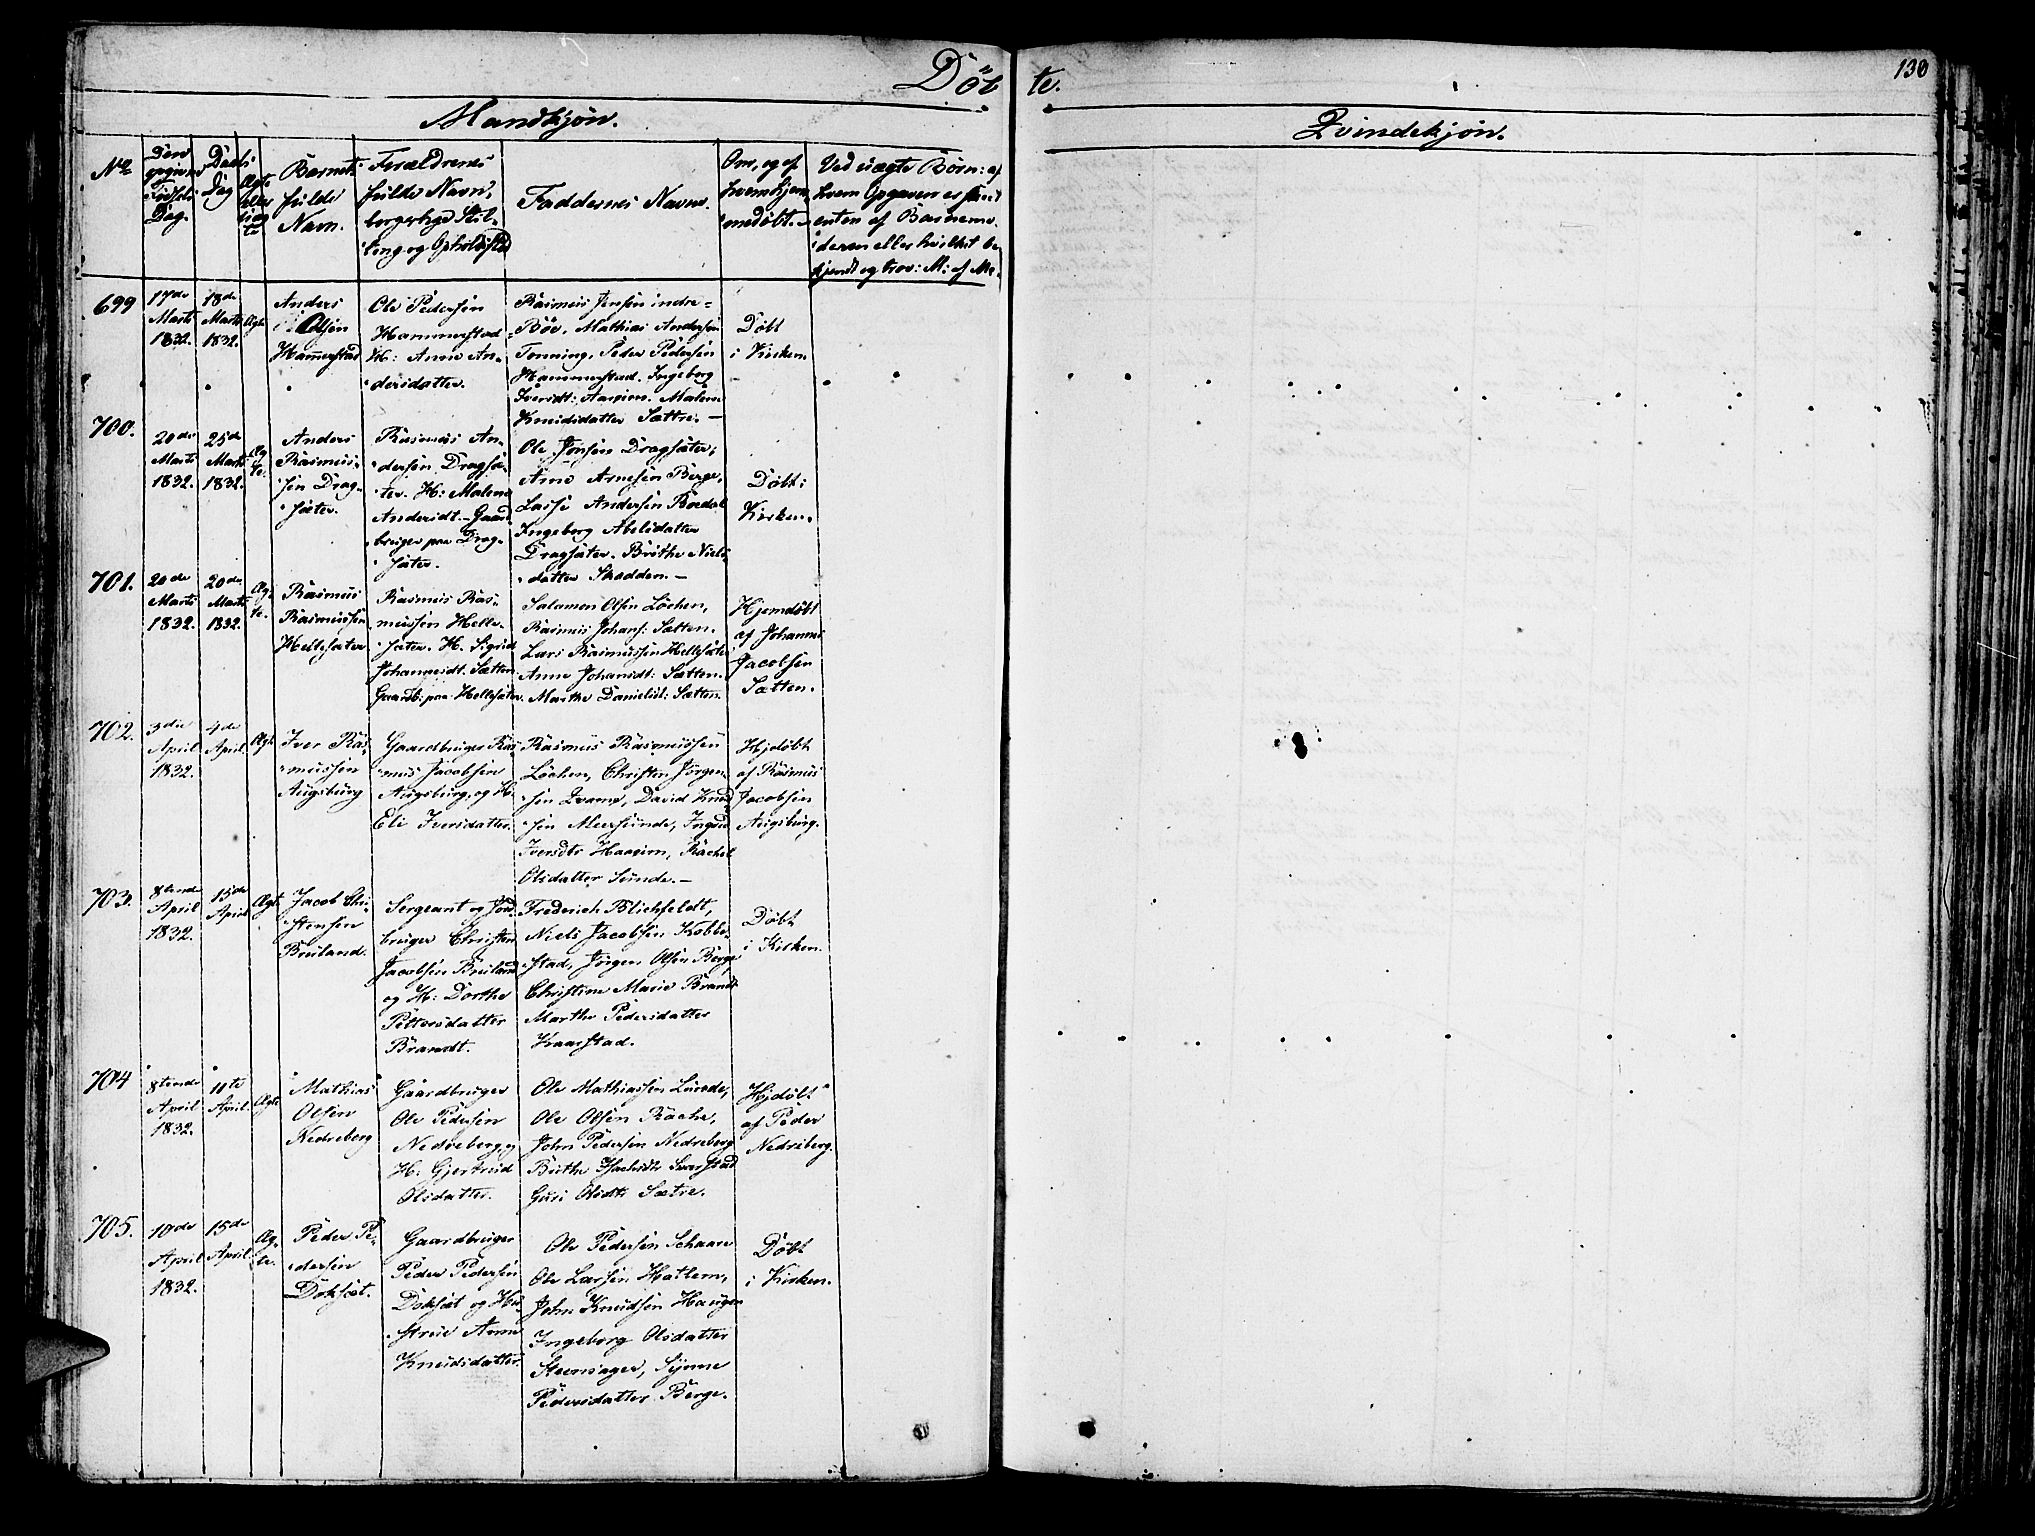 Døbte.
130
Mandkjøn.
Qvindekjøn.
No
Den opgivne Fødsels Dag.
Daabs Dag
Ægte eller uægte
Barnets fulde Navn.
Forældrenes fulde Navn, borgerlige Stilling og Opholdssted
Faddernes Navne.
Om, og af hvem hjemmedøbt.
Ved uægte Børn: af
hvem Opgaven er skeet
enten af Barnemo-
deren eller hvilket be-
kjendt og trov: M: af Me-
699
17de Marts 1832.
18de Marts 1832.
Ægte
Anders
Olsen
Hamerstad
Ole Pedersen
Hammerstad
H: Anne An-
dersdatter.
Rasmus Jensen indre-
Böe, Mathias Andersen
Tonning, Peder Pedersen
Hammerstad. Ingeborg
Iversdt: Aarsim. Malene
Knudsdatter Sættre.
Døbt
i Kirken.
700.
20de Marts 1832.
25de Marts 1832.
Ægte.
Anders
Rasmus-
sen Drag-
sæter.
Rasmus An-
dersen Dragsæ-
ter. H: Malene
Andersdt. Gaard-
bruger paa Drag-
sæter.
Ole Jonsen Dragsæter,
Arne Arnesen Berge,
Lasse Andersen
Ingeborg Abelsdatter
Dragsæter. Brithe Niels-
datter Skodden.
Døbt i
Kirken.
701.
20de Marts 1832.
20de Marts 1832.
Ægte.
Rasmus
Rasmussen
Hellesæter
Rasmus Ras-
mussen Helle-
sæter. H. Sigrid
Johannesdt. Sætten
Gaardb: paa Hellesæter.
Salamon Olsen Löchen,
Rasmus Johans: Sætten.
Lars Rasmussen Hellesæter
Anne Johansdt: Sætten.
Marthe Danielsdt: Sætten.
Hjemdøbt
af Johannes
Jacobsen
Sætten.
702.
3die April 1832.
4de April.
Ægte
Iver Ras-
mussen
Augsburg
Gaardbruger Ras-
mus Jacobsen
Augsburg, og H:
Eli Iversdatter.
Rasmus Rasmussen
Löchen, Christen Jörgen-
sen Qvame, David Knud-
sen Meersunde, Ingrid
Iversdtr Haaeim, Rachel
Olsdatter Sunde.
Hjdøbt
af Rasmus
Jacobsen
Augsburg.
703.
8tende April 1832.
15de April
Ægte
Jacob Chri-
stensen
Bruland.
Sergeant og Jord-
bruger Christen
Jacobsen Bruland
og H: Dorthe
Pettersdatter
Brandt.
Frederich Blichfeldt,
Niels Jacobsen Kobbe-
stad, Jörgen Olsen Berge
Christine Marie Brandt
Marthe Pedersdatter
Kaarstad.
Døbt
i Kirken.
704
8tende April 1832.
11te April.
Ægte
Mathias
Olsen
Nedreberg
Gaardbruger
Ole Pedersen
Nedreberg og
H: Gjertrud
Olsdatter.
Ole Mathiassen Lunde,
Ole Olsen Rache,
John Pedersen Nedreberg
Brithe Isachsdtr Svorstad
Guri Olsdtr Sætre.
Hjdøbt
af Peder
Nedreberg.
705.
10de April 1832.
15de April.
Ægte.
Peder Pe-
dersen
Doksæt.
Gaardbruger
Peder Pedersen
Doksæt og Hu-
strue Anne
Knudsdatter.
Ole Pedersen Schaare
Ole Larsen Hatlem,
John Knudsen Haugen
Ingeborg Olsdatter
Steensager, Synne
Pedersdatter Berge.
Døbt
i Kirken.